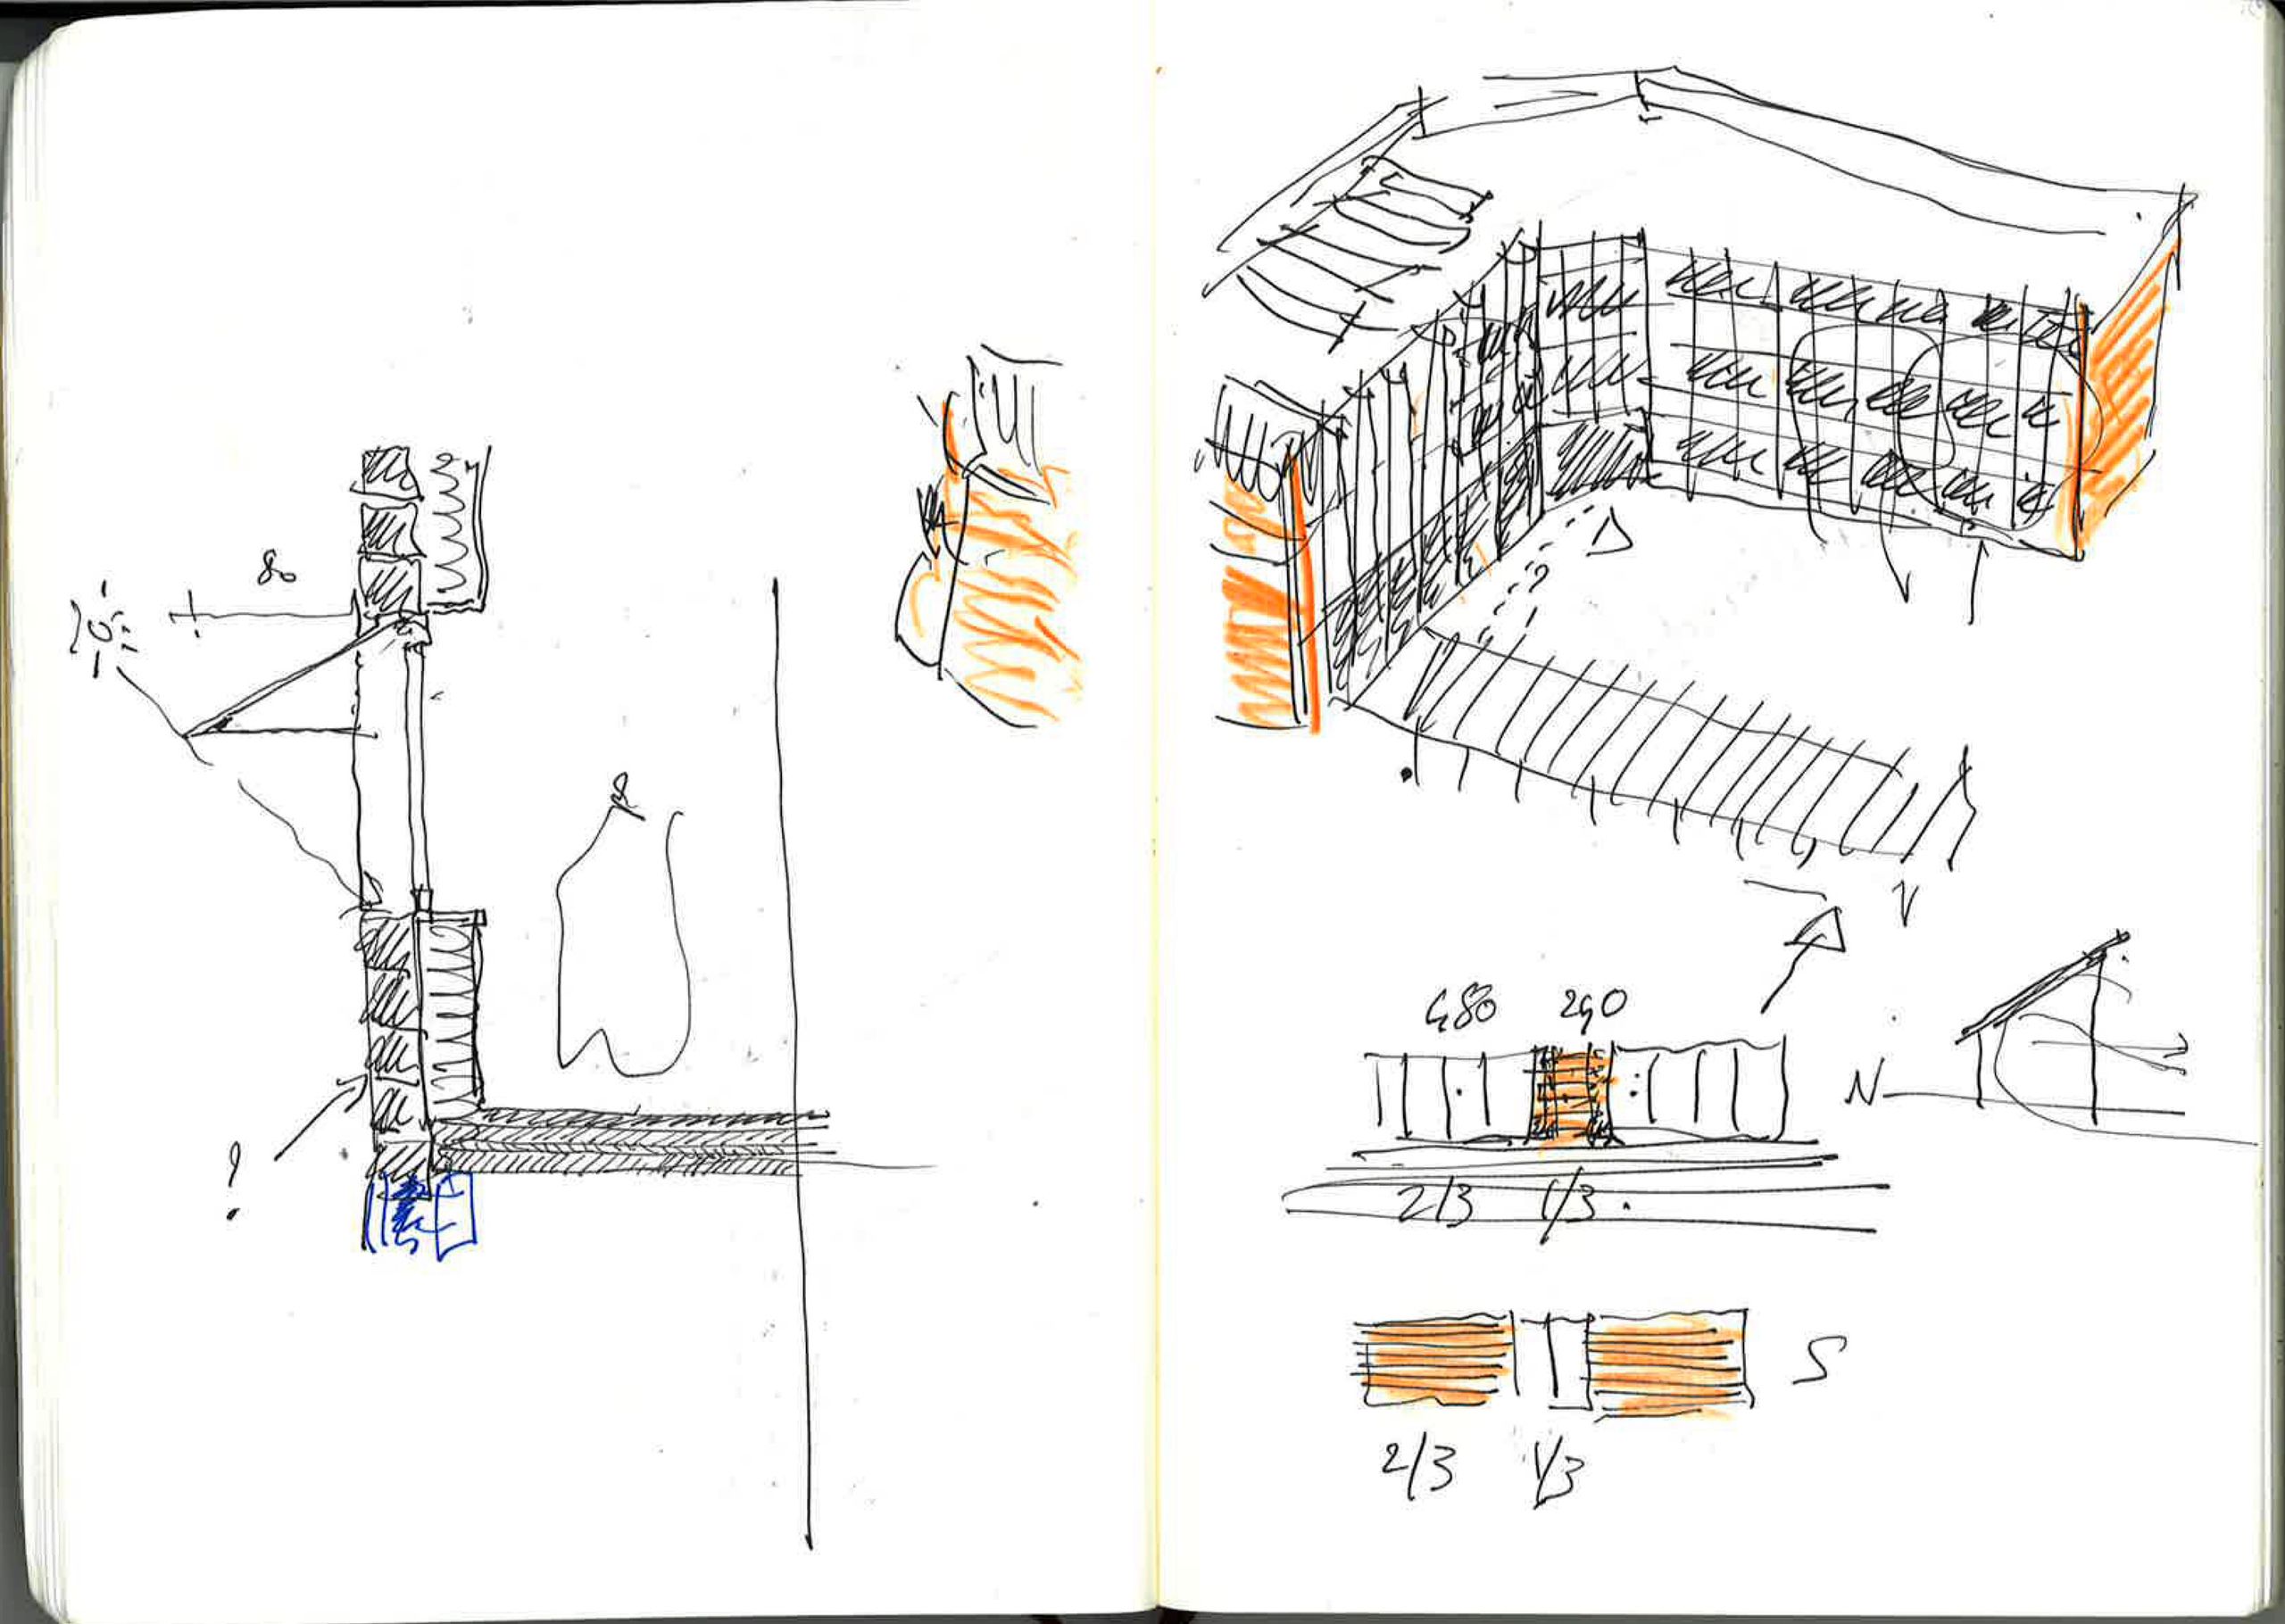 80
?
480 240
N
2/3 1/3
S
2/3 1/3